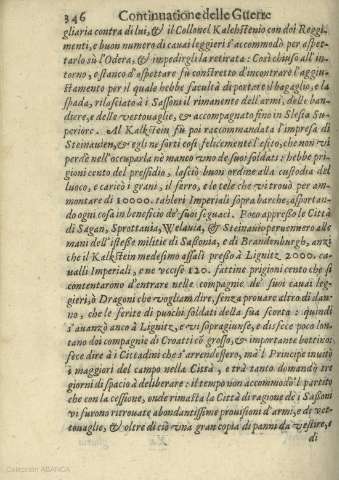 346 Continuatione delle Guerre
gliaria contra di lui, & il Collonel Kalchstenio con doi Reggi-
menti, e buon numero di cauai leggieri s'accommodò per aspet-
tarlo sù l'Odera, & impedirgli la retirata: Così chiuso all'in-
torno, e stanco d'aspettare fù constretto d'incontrare l'aggiu-
stamento per il quale hebbe facultà di portare il bagaglio, e la
spada, rilasciato à i Sassoni il rimanente dell'armi, delle ban-
diere, e delle vettouaglie, & accompagnato fino in Slesia Su-
periore. Al Kalkstein fù poi raccommandata l'impresa di
Steinauien, & egli ne sortì così felicemente l'esito, che non vi
perdè nell'occuparla nè manco vno de' suoi soldati: hebbe pri-
gioni cento del pressidio, lasciò buon ordine alla custodia del
luoco, e caricò i grani, il ferro, e le tele che vi trouò per am-
montare di 10000. tahleri Imperiali sopra barche, asportan-
do ogni cosa in beneficio de' suoi seguaci. Poco appresso le Città
di Sagan, Sprottania, Welauia, & Steinauio peruennero alle
mani dell'istesse militie di Sassonia, e di Brandenburgh, anzi
che il Kalkstein medesimo assalì presso à Lignitz 2000. ca-
ualli Imperiali, e ne vccise 120. fattine prigioni cento che si
contentarono d'entrare nelle compagnie de' suoi cauai leg-
gieri, ò Dragoni che vogliam dire, senza prouare altro di dan-
no, che le ferite di puochi soldati della sua scorta: quindi
s'auanzò anco à Lignitz, e vi sopragiunse, e disfece poco lon-
tano doi compagnie di Croatti cõ grosso, & importante bottino:
fece dire à i Cittadini che s'arrendessero, mà 'l Principe inuitò
i maggiori del campo nella Città, e trà tanto domandò trè
giorni di spacio à deliberare: il tempo non accommodò 'l partito
che con la cessione, onde rimasta la Città di ragione de i Sassoni
vi furono ritrouate abondantissime prouisioni d'armi, e di vet-
touaglie, & oltre di ciò vna gran copia di panni da vestire, e
di
Colección ABANCA